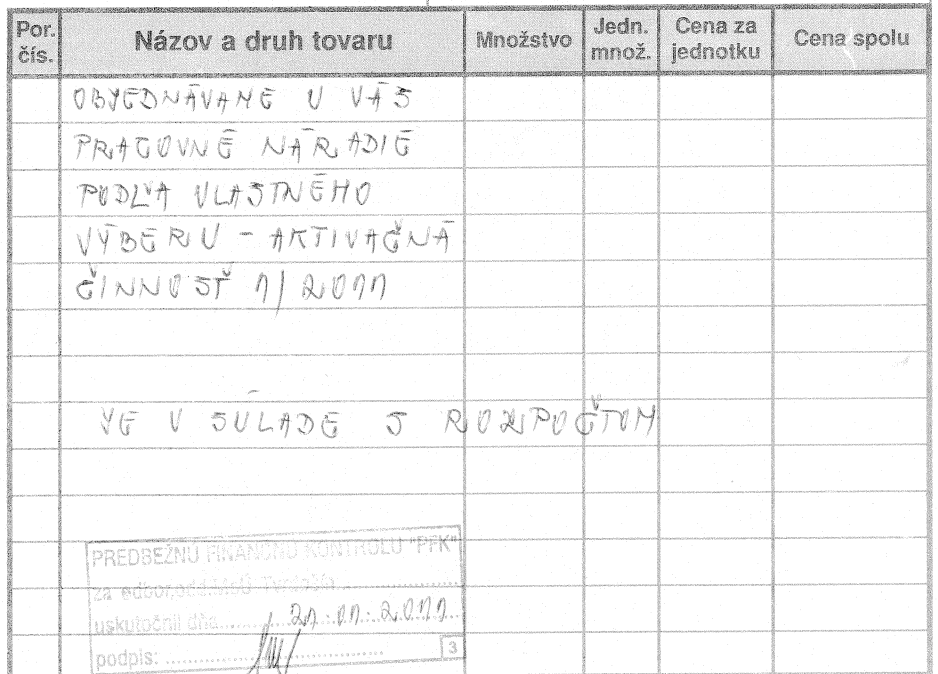 Por. čís. Názov a druh tovaru Množstvo Jedn. množ. Cena za jednotku Cena spolu
OBJEDNÁVAME U VÁS
PRACOVNÉ NÁRADIE
PODĽA VLASTNÉHO
VÝBERU - AKTIVAČNÁ
ČINNOSŤ 1/2011
JE V SÚLADE S ROZPOČTOM
PREDBEŽNÚ FINANČNÚ KONTROLU "PFK"
za odbor,odd.MsÚ
uskutočnil dňa 21.01.2011
podpis: 3